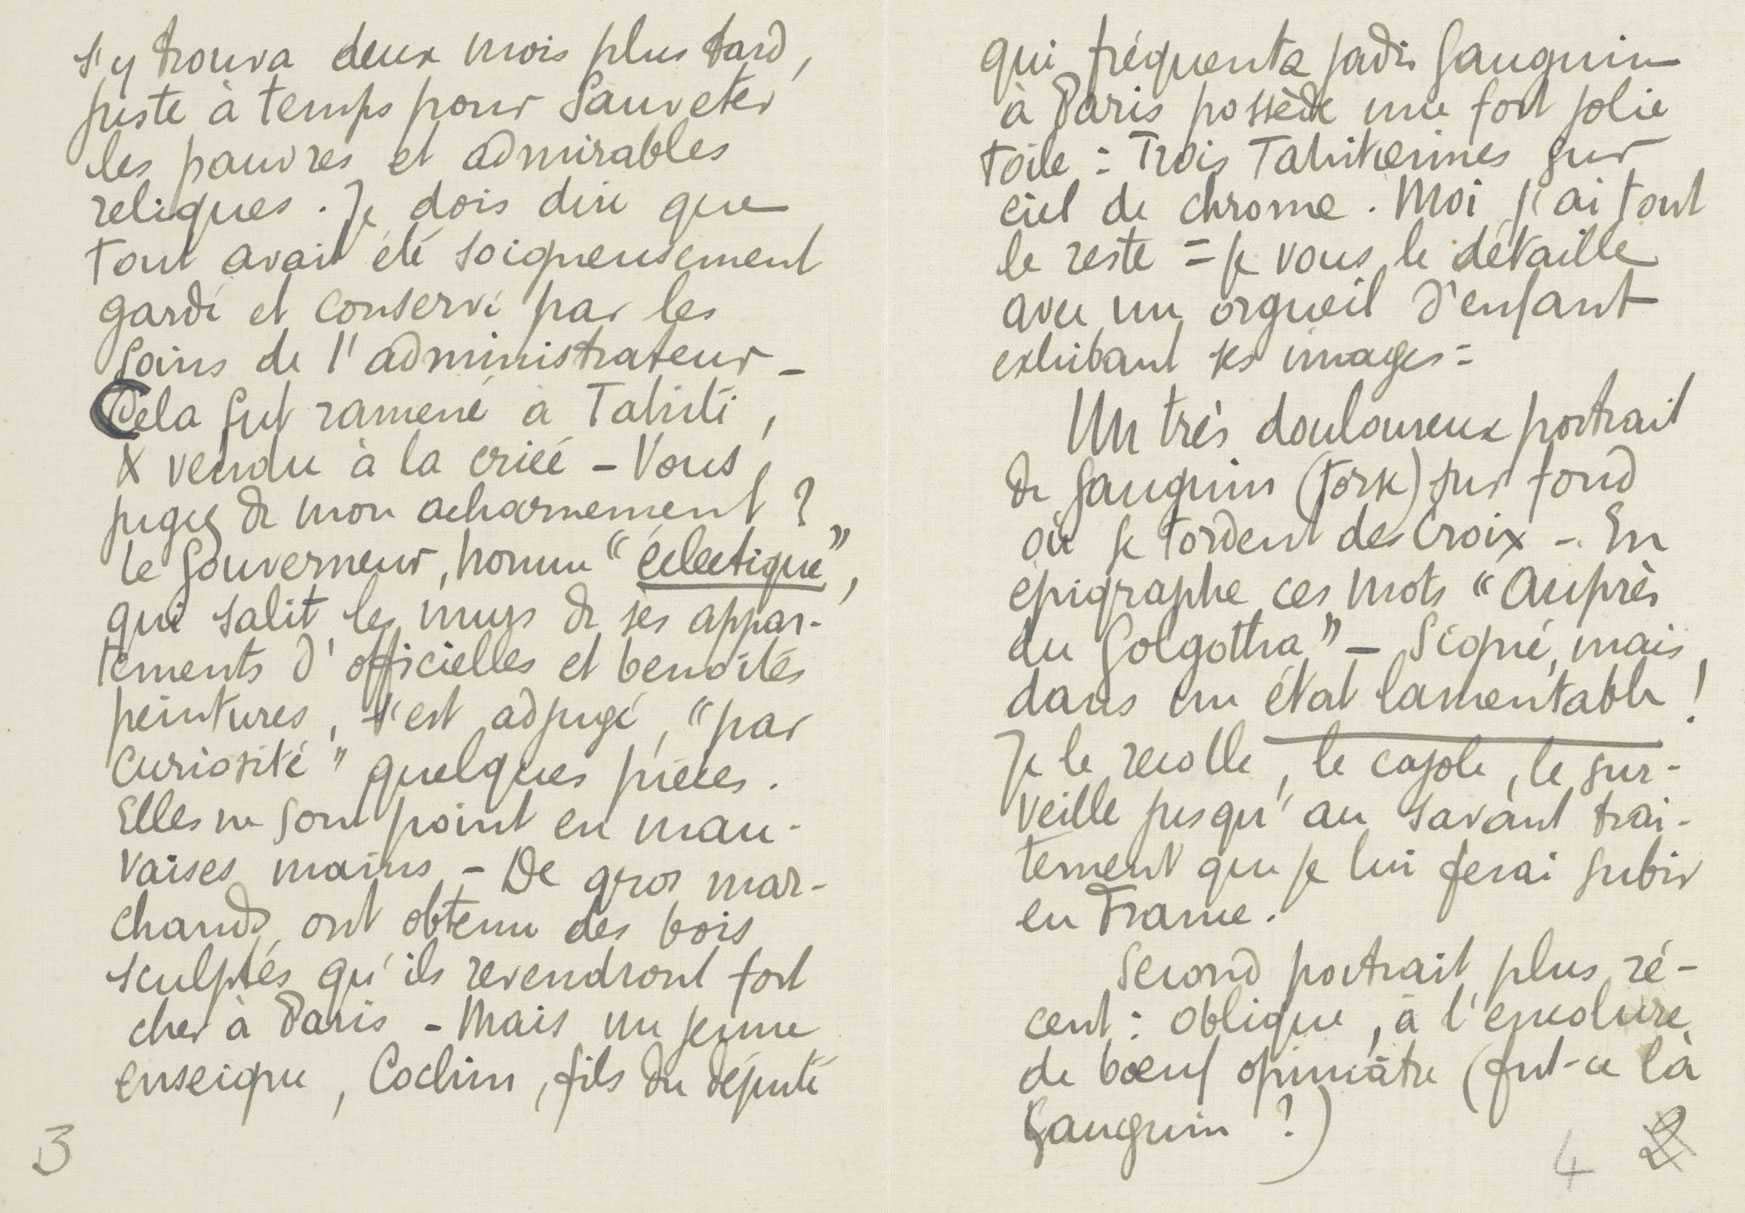 s'y trouva deux mois plus tard,
juste à temps pour Sauveter
les pauvres et admirables
reliques. Je dois dire que
tout avait été soigneusement
gardé et conservé par les
soins de l'administrateur –
Cela fut ramené à Tahiti,
& vendu à la criée – Vous
jugez de mon acharnement ?
le Gouverneur, homme "éclectique",
qui salit les murs de ses appar-
tements d'officielles et benoîtes
peintures, s'est adjugé, "par
curiosité" quelques pièces.
Elles ne sont point en mau-
vaises mains – De gros mar-
chands ont obtenu des bois
sculptés qu'ils revendront fort
cher à Paris – Mais un jeune
enseigne, Cochin, fils du député
3
qui fréquenta jadis Gauguin
à Paris possède une fort jolie
toile : Trois Tahitiennes sur
ciel de chrome. Moi j'ai tout
le reste = Je vous le détaille
avec un orgueil d'enfant
exhibant ses images =
Un très douloureux portrait
de Gauguin (torse) sur fond
où se tordent des Croix – En
épigraphe ces mots "Auprès
du Golgotha" – Signé, mais
dans un état lamentable !
Je le recolle, le cajole, le sur-
veille jusqu'au savant trai-
tement que je lui ferai subir
en France.
Second portrait plus ré-
cent : oblique, à l'encolure
de bœuf opiniâtre (fut-ce là
Gauguin ?)
4 2